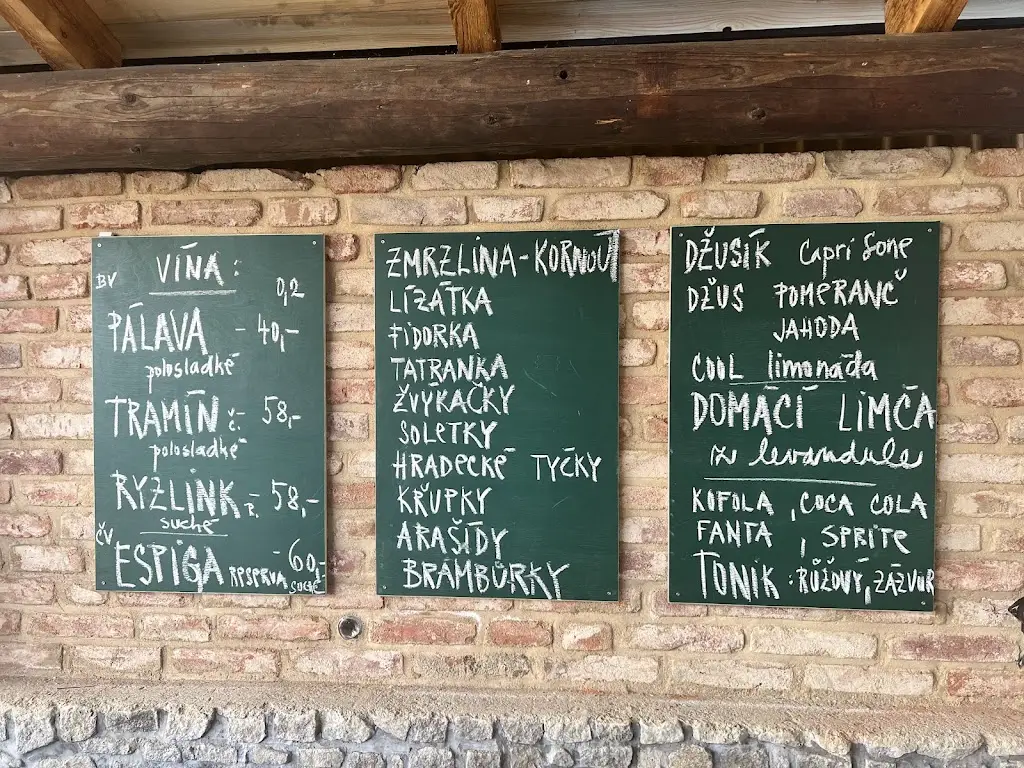 VÍNA:
BV
0,2
PÁLAVA - 40,-
polosladké
TRAMÍN č.- 58,-
polosladké
RYZLINK R. - 58,-
suché
ČV
ESPIGA RESERVA - 60,-
suché
ZMRZLINA - KORNOUT
LÍZÁTKA
FIDORKA
TATRANKA
ŽVÝKAČKY
SOLETKY
HRADECKÉ TYČKY
KŘUPKY
ARAŠÍDY
BRAMBŮRKY
DŽUSÍK Capri Sone
DŽUS POMERANČ
JAHODA
COOL limonáda
DOMÁCÍ LIMČA
z levandule
KOFOLA, COCA COLA
FANTA, SPRITE
TONIK: RŮŽOVÝ, ZÁZVOR